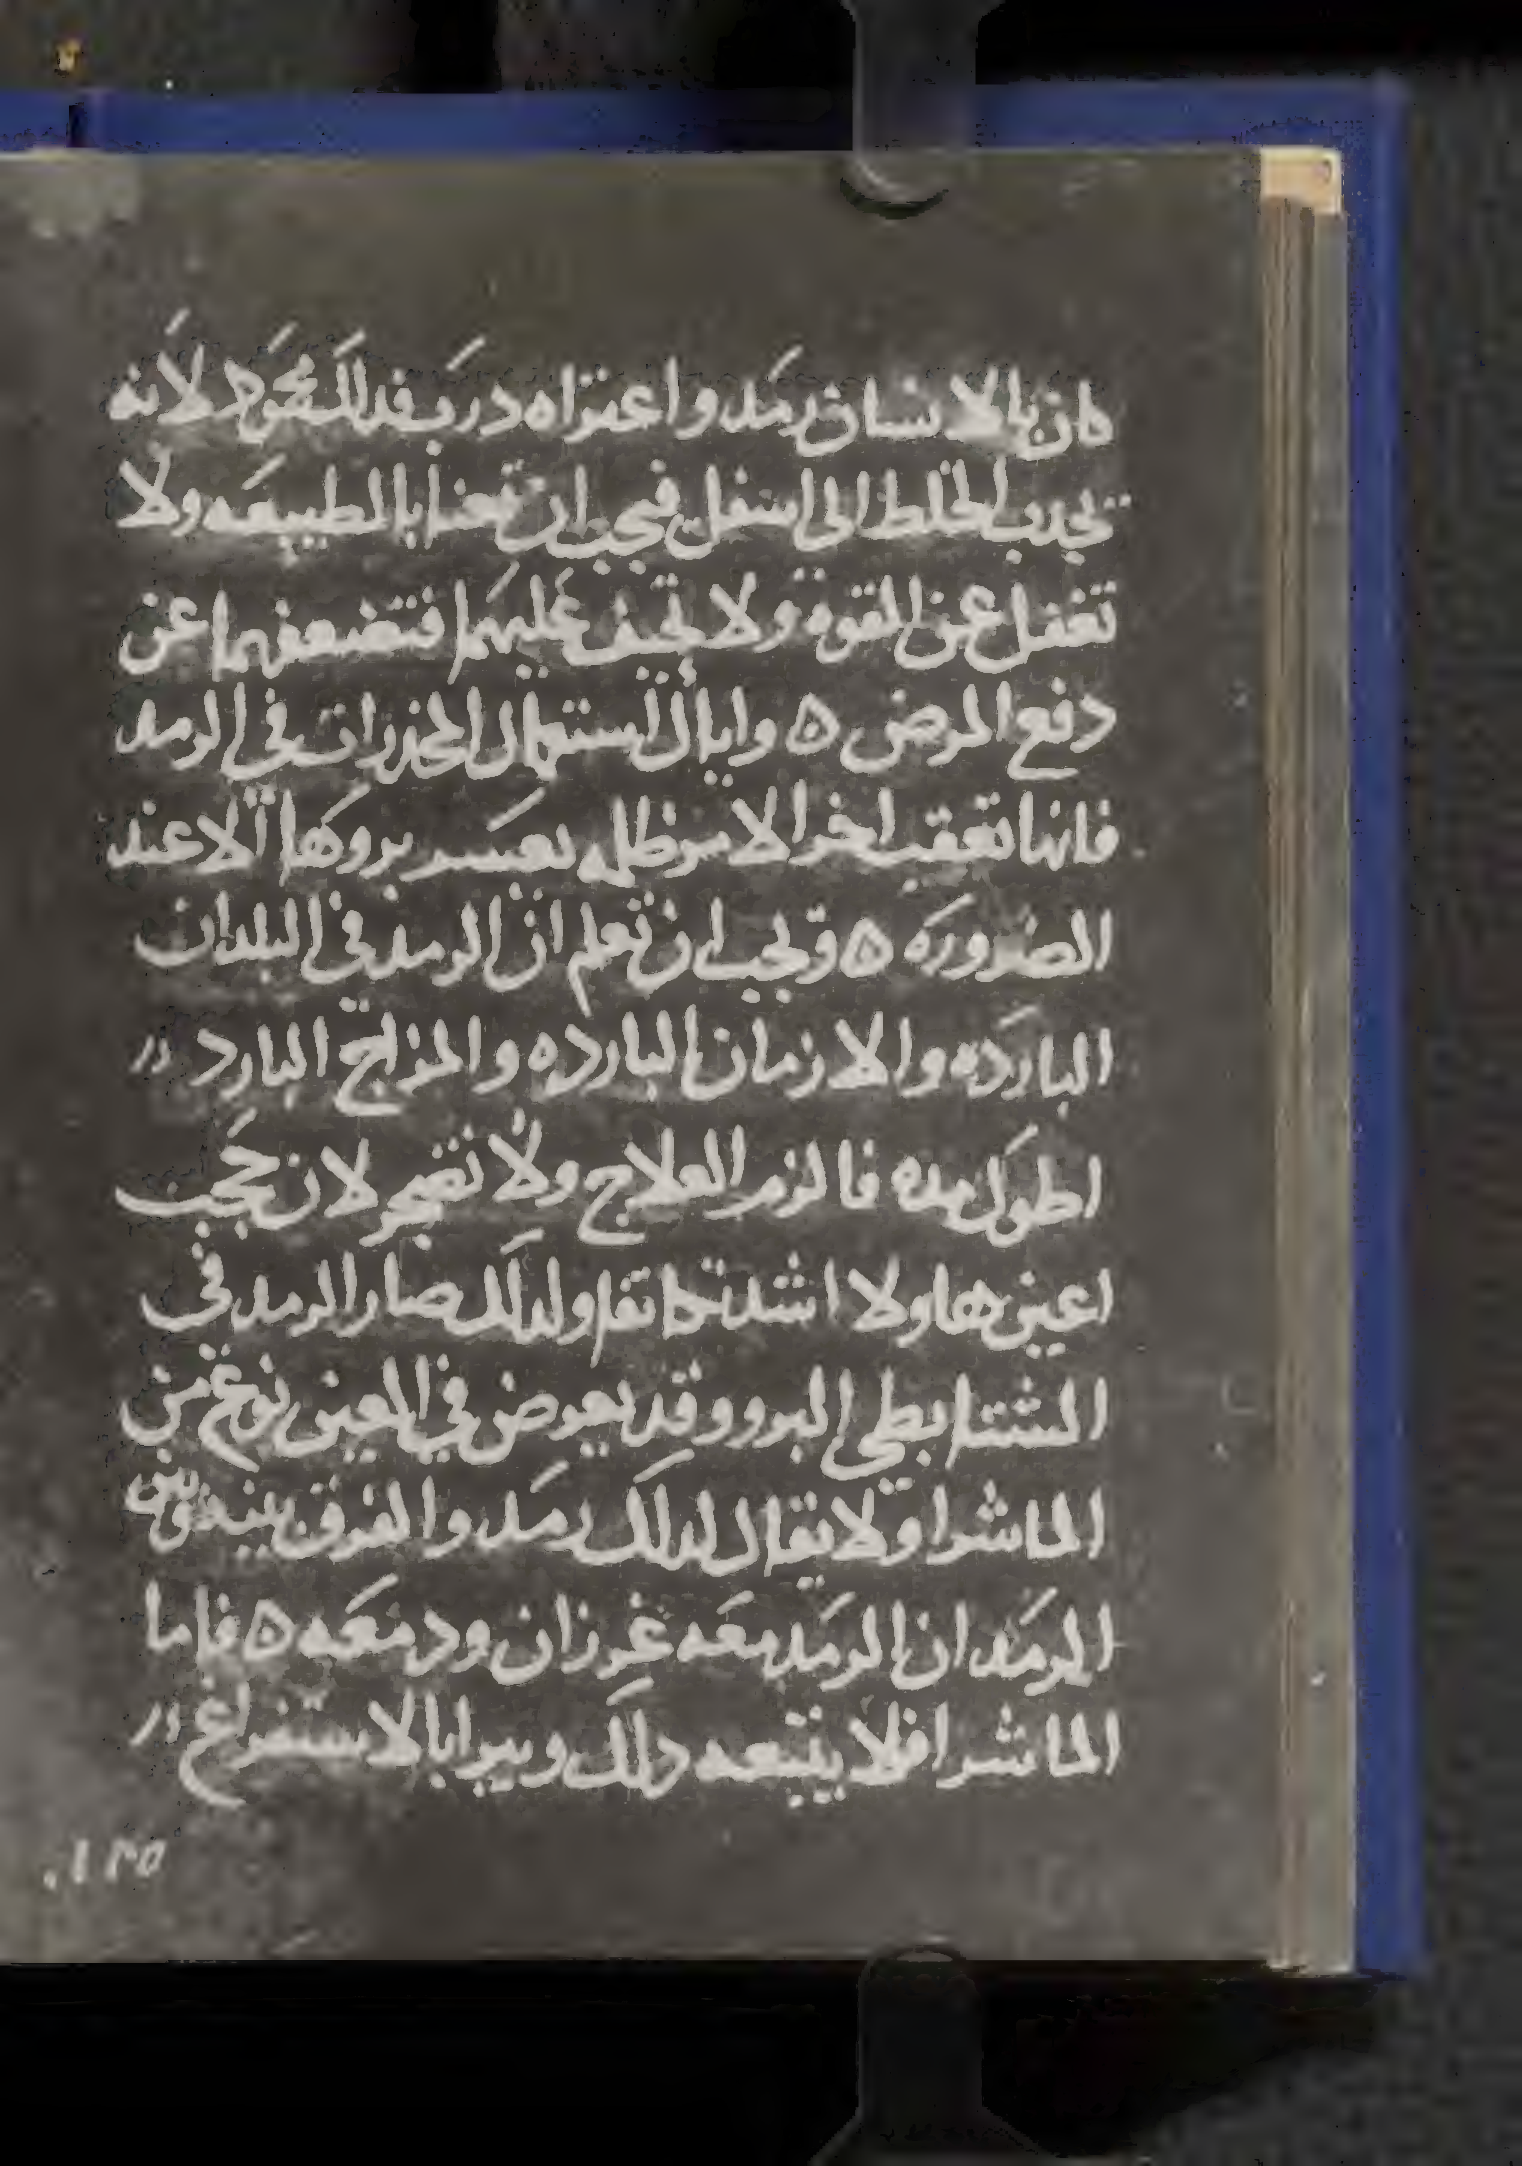 كان بالانسان رمد واعتراه درب فدلك محمود لانه
تجدب الخلط الى اسفل فيجب ان تعنا بالطبيعه ولا
تغفل عن القوة ولا تحيف عليهما فتضعفهما عن
دفع المرض ه واياك استعمال المخدرات في الرمد
فانها تعقب اخر الامر ظلمه يعسر بروها الا عند
الضروره ه وتجب ان تعلم ان الرمد في البلدان
البارده والازمان البارده والمزاج البارد
اطول مده فالزم العلاج ولا تضجر لان حجب
اعينها ولا اشد تكاتفا ولدلك صار الرمد في
الشتا بطي البرو وقد يعرض في العين نوع من
الماشرا ولا يقال لدلك رمد والفرق بينه وبين
الرمد ان الرمد معه غرزان ودمعه ه فاما
الماشرا فلا يتبعه دلك ويبرا بالاستفراغ